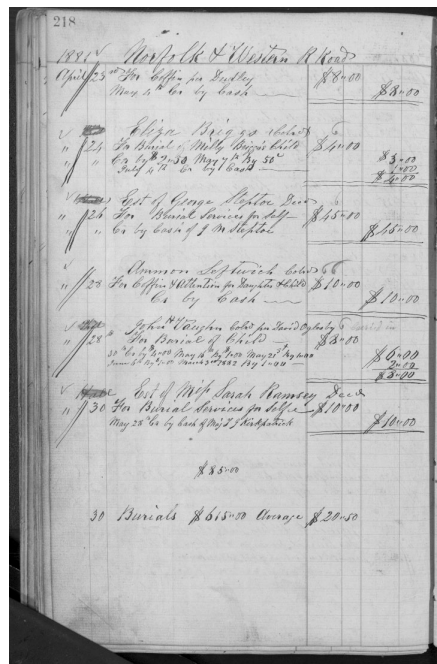 218
1881 Norfolk & Western R Road
April 23 rd For Coffin per Dudley $8"00
May 4th Cr by Cash $8"00
Eliza Briggs Cold
" 24 For Burial of Milly Briggs Child $4"00
" " Cr by $2"50 May 7th By 50c $3"00
July 4th Cr by Cash 1"00
$4"00
Est of George Steptoe Decd
" 26 For Burial Services for Self $45"00
" " Cr by Cash of J M Steptoe $45"00
Ammon Leftwich Cold
" 28 For Coffin & Attention for Daughter & Child $10"00
Cr by Cash $10"00
John H Vaughn Cold per David Oglesby
" 28 th For Burial of Child $8"00
30th Cr by $4"00 May 14th By 1"00 May 21st By 1"00 $6"00
1882 2"00
$8"00
Est of Miss Sarah Ramsey Decd
" 30 For Burial Services for Self $10"00
May 28th Cr by Cash of Maj T J Kirkpatrick $10"00
$85"00
30 Burials $615"00 Average $20"50